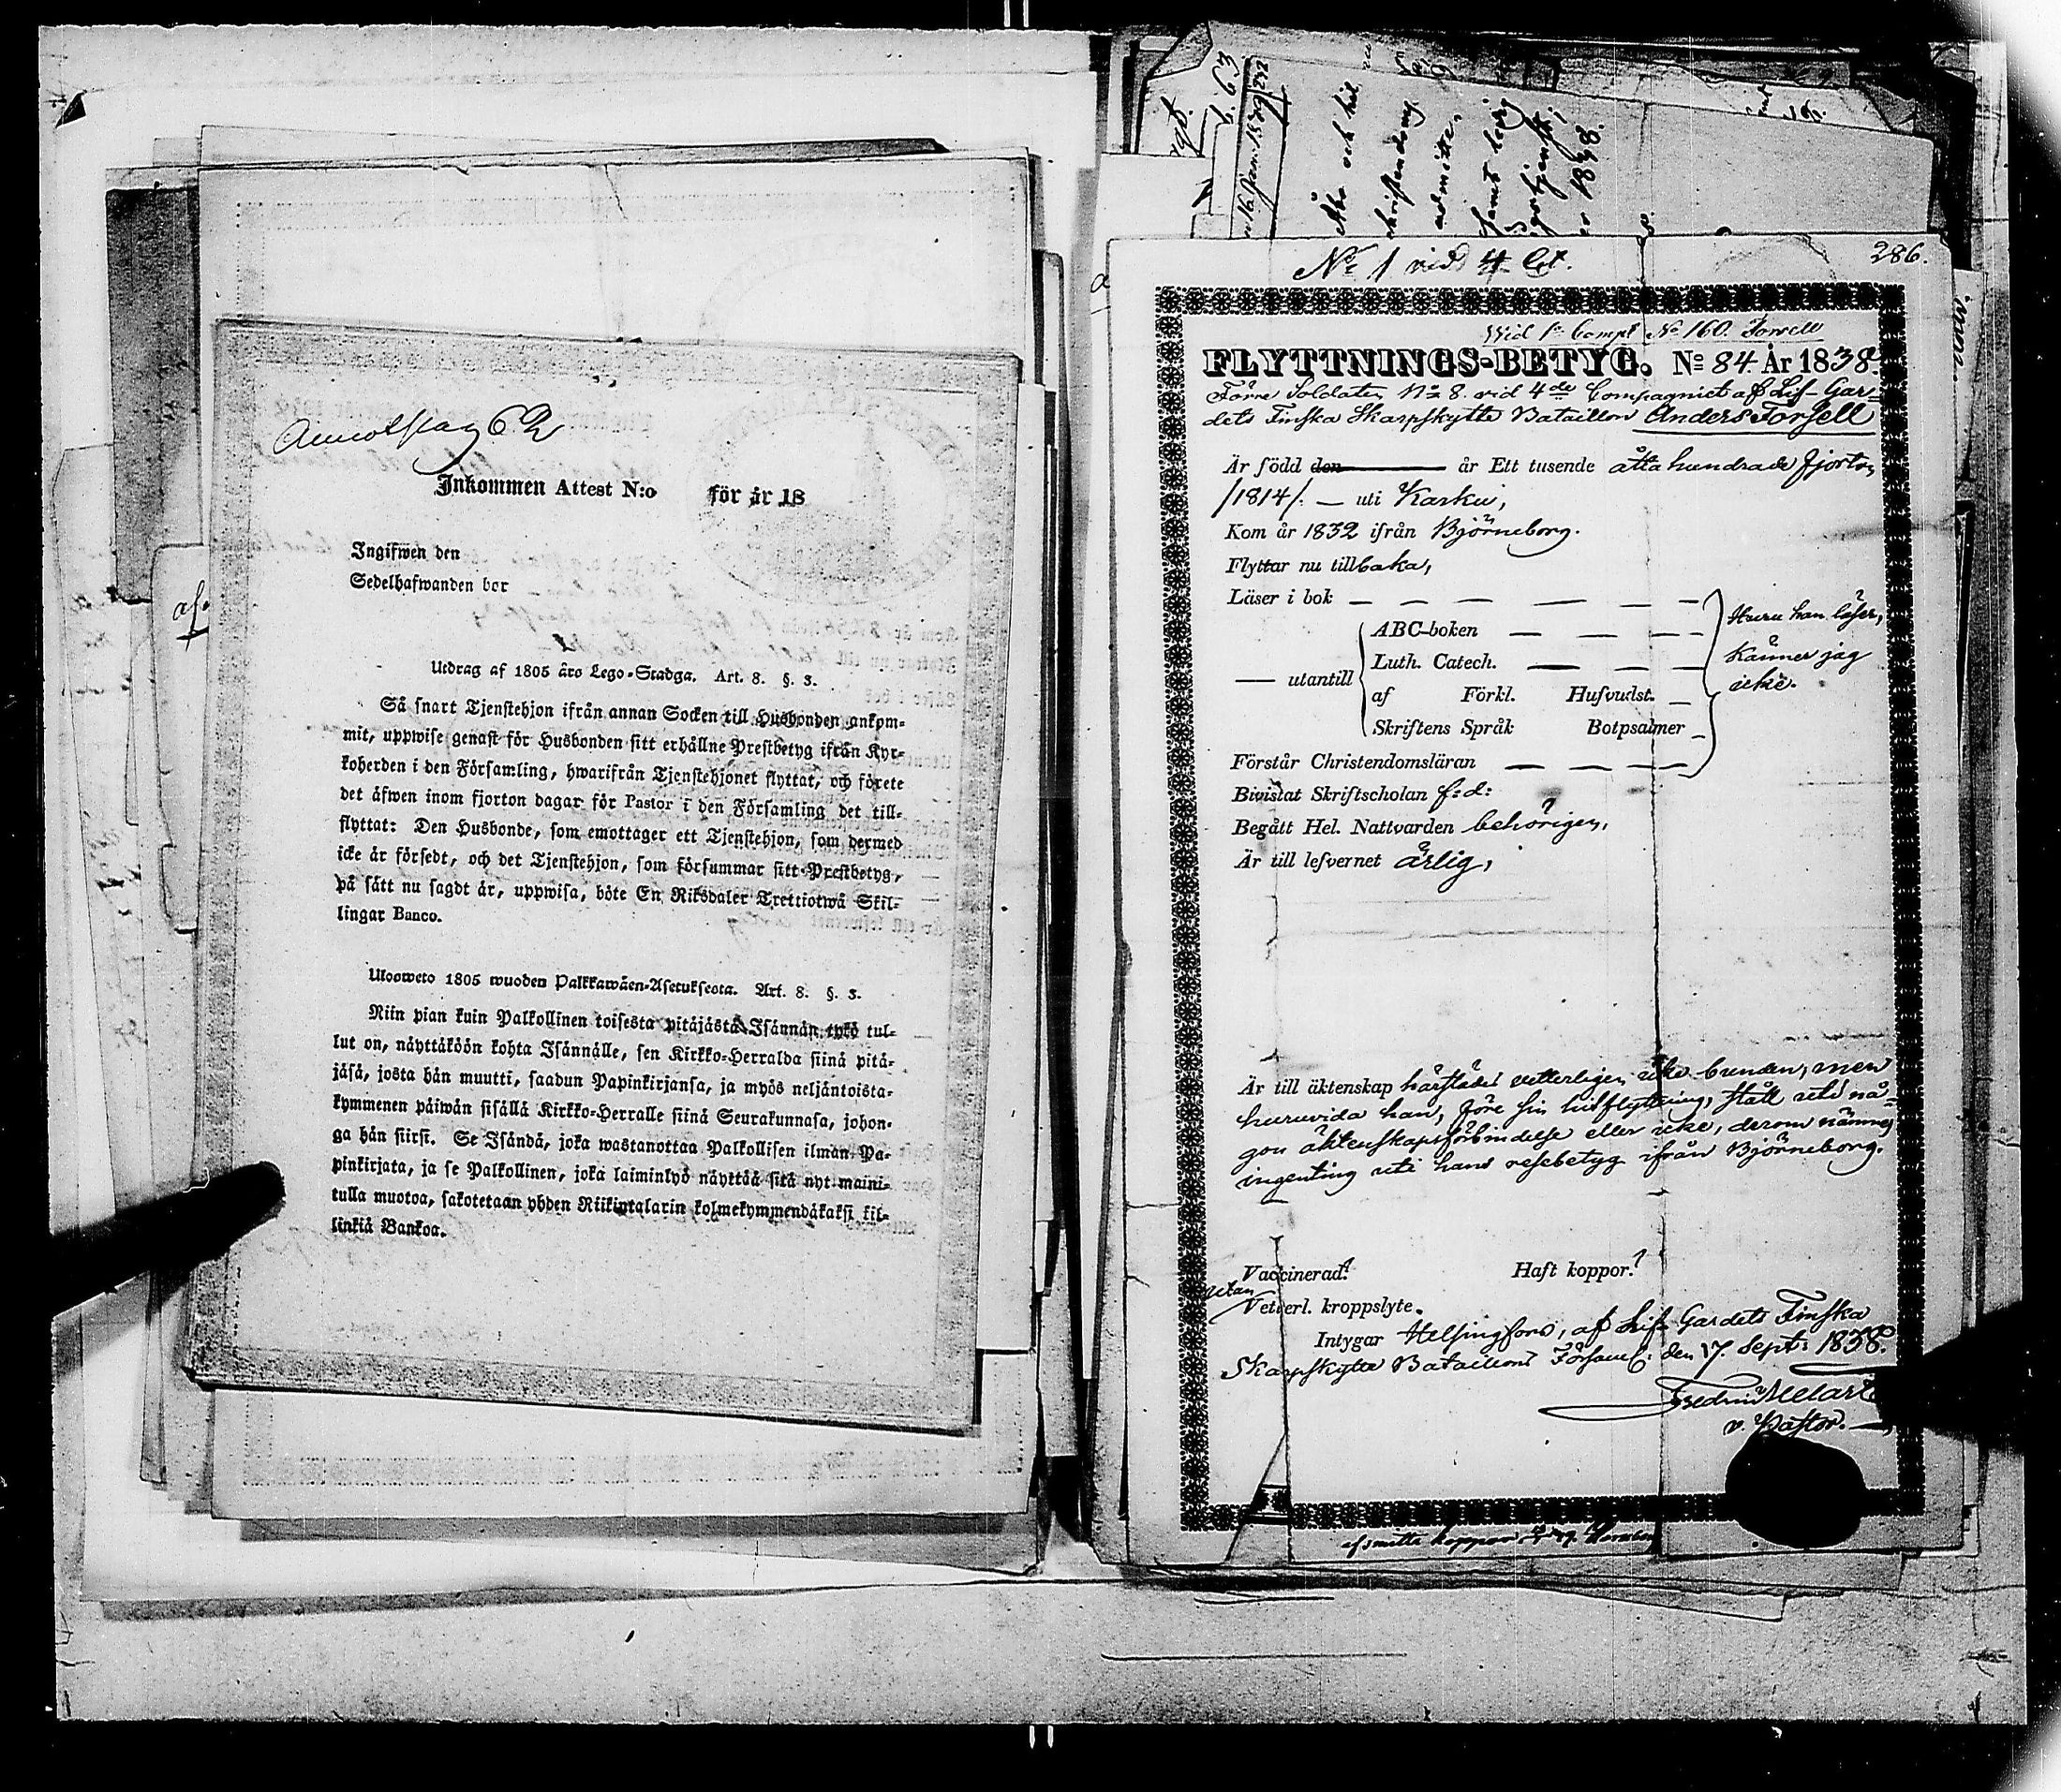 62
Inkommen Attest N:o för år 18
Ingifwen den
Sedelhafwanden bor
Utdrag af 1805 års Lego-Stadga. Art. 8. §. 3.
Så snart Tjenstehjon ifrån annan Socken till Husbonden ankom-
mit, uppwise genast för Husbonden sitt erhållne Prestbetyg ifrån Kyr-
koherden i den Församling, hwarifrån Tjenstehjonet flyttat, och förete
det äfwen inom fjorton dagar för Pastor i den Församling det till-
flyttat: Den Husbonde, som emottager ett Tjenstehjon, som dermed
icke är försedt, och det Tjenstehjon, som försummar sitt Prestbetyg,
på sätt nu sagdt är, uppwisa, böte En Riksdaler Trettiotwå Skil-
lingar Banco.
Uloosweto 1805 wuoden Palkkawäen-Asetuksesta. Art. 8. §. 3.
Niin pian kuin Palkollinen toisesta pitäjästä Isännän tykö tul-
lut on, näyttäköön kohta Isännälle, sen Kirkko-Herralda siinä pitä-
jäsä, josta hän muutti, saadun Papinkirjansa, ja myös neljäntoista-
kymmenen päiwän sisällä Kirkko-Herralle siinä Seurakunnasa, johon-
ga hän siirsi. Se Isändä, joka wastanottaa Palkollisen ilman Pa-
pinkirjata, ja se Palkollinen, joka laiminlyö näyttää sitä nyt maini-
tulla muotoa, sakotetaan yhden Riikintalarin kolmekymmendäkaksi kil-
linkiä Bankoa.
286.
No 1 vid 4 Ct.
Wid 1a Compt No 160. Forsell
FLYTTNINGS-BETYG. No 84 År 1838.
Förre Soldaten No 8. vid 4de Compagniet af Lif-Gar-
dets Finska Skarpskytte Bataillon Anders Forsell
Är född den år Ett tusende åtta hundrade fjorton
/1814/. — uti Karku,
Kom år 1832 ifrån Björneborg.
Flyttar nu tillbaka,
Läser i bok
— utantill
ABC-boken
Luth. Catech.
af Förkl. Husvudst.
Skriftens Språk Botpsalmer
Huru han läser,
känner jag
icke.
Förstår Christendomsläran
Bivistat Skriftscholan f:d:
Begått Hel. Nattvarden behörigen,
Är till lefvernet ärlig,
Är till äktenskap härstädes vetterligen icke bunden, men
huruvida han, före sin hitflyttning, stått uti nå-
gon äktenskapsförbindelse eller icke, derom nämnes
ingenting uti hans resebetyg ifrån Björneborg.
Vaccinerad? Haft koppor?
utan
Vetterl. kroppslyte.
Intygar Helsingfors, af Lif-Gardets Finska
Skarpskytte Bataillons Församl. den 17. Sept: 1838.
v. Pastor.